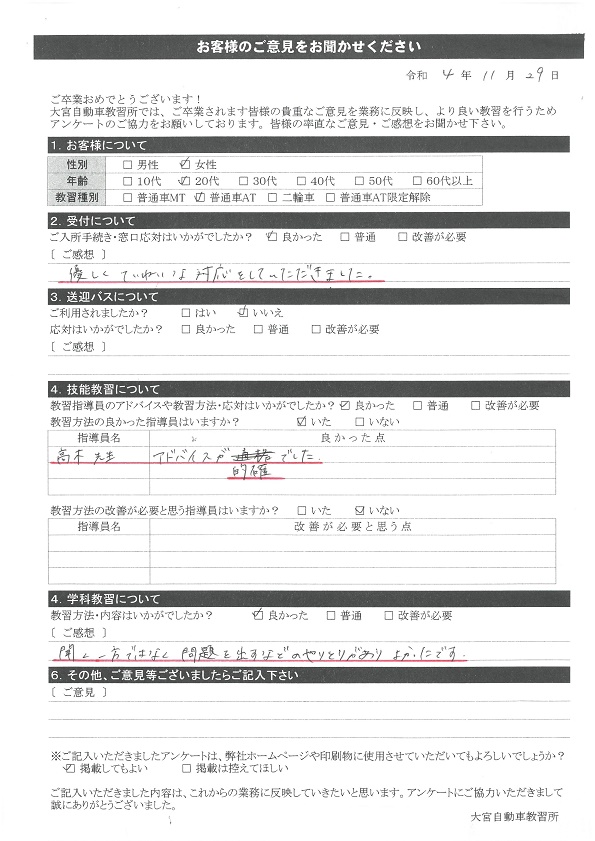 お客様のご意見をお聞かせください
令和 4 年 11 月 29 日
ご卒業おめでとうございます！
大宮自動車教習所では、ご卒業されます皆様の貴重なご意見を業務に反映し、より良い教習を行うため
アンケートのご協力をお願いしております。皆様の率直なご意見・ご感想をお聞かせ下さい。
1. お客様について
性別 □ 男性 ☑ 女性
年齢 □ 10代 ☑ 20代 □ 30代 □ 40代 □ 50代 □ 60代以上
教習種別 □ 普通車MT ☑ 普通車AT □ 二輪車 □ 普通車AT限定解除
2. 受付について
ご入所手続き・窓口応対はいかがでしたか？ ☑ 良かった □ 普通 □ 改善が必要
［ ご感想 ］
優しくていねいな対応をしていただきました。
3. 送迎バスについて
ご利用されましたか？ □ はい ☑ いいえ
応対はいかがでしたか？ □ 良かった □ 普通 □ 改善が必要
［ ご感想 ］
4. 技能教習について
教習指導員のアドバイスや教習方法・応対はいかがでしたか？ ☑ 良かった □ 普通 □ 改善が必要
教習方法の良かった指導員はいますか？ ☑ いた □ いない
指導員名 良かった点
高木 先生 アドバイスが でした.
的確
教習方法の改善が必要と思う指導員はいますか？ □ いた ☑ いない
指導員名 改善が必要と思う点
4. 学科教習について
教習方法・内容はいかがでしたか？ ☑ 良かった □ 普通 □ 改善が必要
［ ご感想 ］
聞く一方ではなく 問題を出すなどのやりとりがあり よかったです.
6. その他、ご意見等ございましたらご記入下さい
［ ご意見 ］
※ご記入いただきましたアンケートは、弊社ホームページや印刷物に使用させていただいてもよろしいでしょうか？
☑ 掲載してもよい □ 掲載は控えてほしい
ご記入いただきました内容は、これからの業務に反映していきたいと思います。アンケートにご協力いただきまして
誠にありがとうございました。
大宮自動車教習所